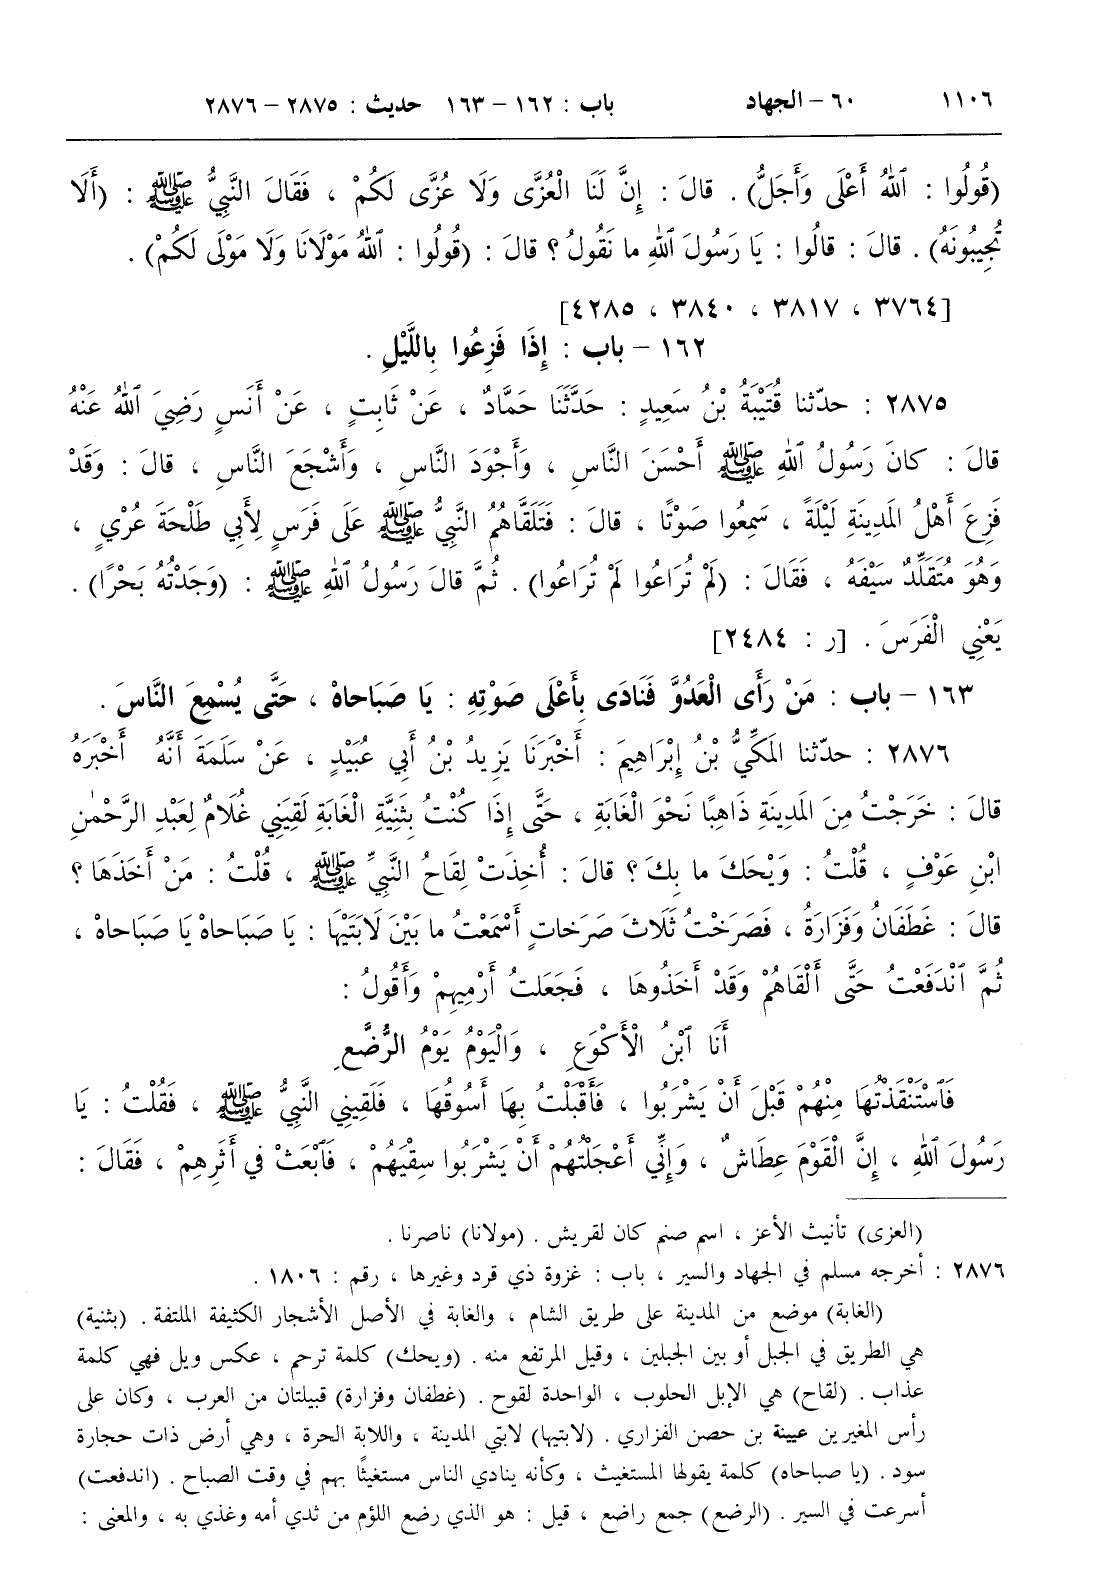 ١١٠٦ ٦٠ – الجهاد باب : ١٦٢ – ١٦٣ حديث : ٢٨٧٥ – ٢٨٧٦
(قُولُوا : ٱللهُ أَعْلَى وَأَجَلُّ) . قالَ : إِنَّ لَنَا الْعُزَّى وَلَا عُزَّى لَكُمْ ، فَقَالَ النَّبِيُّ ﷺ : (أَلَا
تُجِيبُونَهُ) . قالَ : قالُوا : يَا رَسُولَ ٱللهِ ما نَقُولُ ؟ قالَ : (قُولُوا : ٱللهُ مَوْلَانَا وَلَا مَوْلَى لَكُمْ) .
[٣٧٦٤ ، ٣٨١٧ ، ٣٨٤٠ ، ٤٢٨٥]
١٦٢ – باب : إِذَا فَزِعُوا بِاللَّيْلِ .
٢٨٧٥ : حدّثنا قُتَيْبَةُ بْنُ سَعِيدٍ : حَدَّثَنَا حَمَّادٌ ، عَنْ ثَابِتٍ ، عَنْ أَنَسٍ رَضِيَ ٱللهُ عَنْهُ
قالَ : كانَ رَسُولُ ٱللهِ ﷺ أَحْسَنَ النَّاسِ ، وَأَجْوَدَ النَّاسِ ، وَأَشْجَعَ النَّاسِ ، قالَ : وَقَدْ
فَزِعَ أَهْلُ المَدِينَةِ لَيْلَةً ، سَمِعُوا صَوْتًا ، قالَ : فَتَلَقَّاهُمُ النَّبِيُّ ﷺ عَلَى فَرَسٍ لِأَبِي طَلْحَةَ عُرْيٍ ،
وَهُوَ مُتَقَلِّدٌ سَيْفَهُ ، فَقَالَ : (لَمْ تُرَاعُوا لَمْ تُرَاعُوا) . ثُمَّ قالَ رَسُولُ ٱللهِ ﷺ : (وَجَدْتُهُ بَحْرًا) .
يَعْنِي الْفَرَسَ . [ر : ٢٤٨٤]
١٦٣ – باب : مَنْ رَأَى الْعَدُوَّ فَنَادَى بِأَعْلَى صَوْتِهِ : يَا صَبَاحاهْ ، حَتَّى يُسْمِعَ النَّاسَ .
٢٨٧٦ : حدّثنا المَكِّيُّ بْنُ إِبْرَاهِيمَ : أَخْبَرَنَا يَزِيدُ بْنُ أَبِي عُبَيْدٍ ، عَنْ سَلَمَةَ أَنَّهُ أَخْبَرَهُ
قالَ : خَرَجْتُ مِنَ المَدِينَةِ ذَاهِبًا نَحْوَ الْغَابَةِ ، حَتَّى إِذَا كُنْتُ بِثَنِيَّةِ الْغَابَةِ لَقِيَنِي غُلَامٌ لِعَبْدِ الرَّحْمٰنِ
ابْنِ عَوْفٍ ، قُلْتُ : وَيْحَكَ ما بِكَ ؟ قالَ : أُخِذَتْ لِقَاحُ النَّبِيِّ ﷺ ، قُلْتُ : مَنْ أَخَذَهَا ؟
قالَ : غَطَفَانُ وَفَزَارَةُ ، فَصَرَخْتُ ثَلَاثَ صَرَخاتٍ أَسْمَعْتُ ما بَيْنَ لَابَتَيْهَا : يَا صَبَاحاهْ يَا صَبَاحاهْ ،
ثُمَّ ٱنْدَفَعْتُ حَتَّى أَلْقَاهُمْ وَقَدْ أَخَذُوهَا ، فَجَعَلتُ أَرْمِيهِمْ وَأَقُولُ :
أَنَا ٱبْنُ الْأَكْوَعِ ، وَالْيَوْمُ يَوْمُ الرُّضَّعِ
فَٱسْتَنْقَذْتُهَا مِنْهُمْ قَبْلَ أَنْ يَشْرَبُوا ، فَأَقْبَلْتُ بِهَا أَسُوقُهَا ، فَلَقِيَنِي النَّبِيُّ ﷺ ، فَقُلْتُ : يَا
رَسُولَ ٱللهِ ، إِنَّ الْقَوْمَ عِطَاشٌ ، وَإِنِّي أَعْجَلْتُهُمْ أَنْ يَشْرَبُوا سِقْيَهُمْ ، فَٱبْعَثْ فِي أَثَرِهِمْ ، فَقَالَ :
(العزى) تأنيث الأعز ، اسم صنم كان لقريش . (مولانا) ناصرنا .
٢٨٧٦ : أخرجه مسلم في الجهاد والسير ، باب : غزوة ذي قرد وغيرها ، رقم : ١٨٠٦ .
(الغابة) موضع من المدينة على طريق الشام ، والغابة في الأصل الأشجار الكثيفة الملتفة . (بثنية)
هي الطريق في الجبل أو بين الجبلين ، وقيل المرتفع منه . (ويحك) كلمة ترحم ، عكس ويل فهي كلمة
عذاب . (لقاح) هي الإبل الحلوب ، الواحدة لقوح . (غطفان وفزارة) قبيلتان من العرب ، وكان على
رأس المغيرين عيينة بن حصن الفزاري . (لابتيها) لابتي المدينة ، واللابة الحرة ، وهي أرض ذات حجارة
سود . (يا صباحاه) كلمة يقولها المستغيث ، وكأنه ينادي الناس مستغيثًا بهم في وقت الصباح . (اندفعت)
أسرعت في السير . (الرضع) جمع راضع ، قيل : هو الذي رضع اللؤم من ثدي أمه وغذي به ، والمعنى :